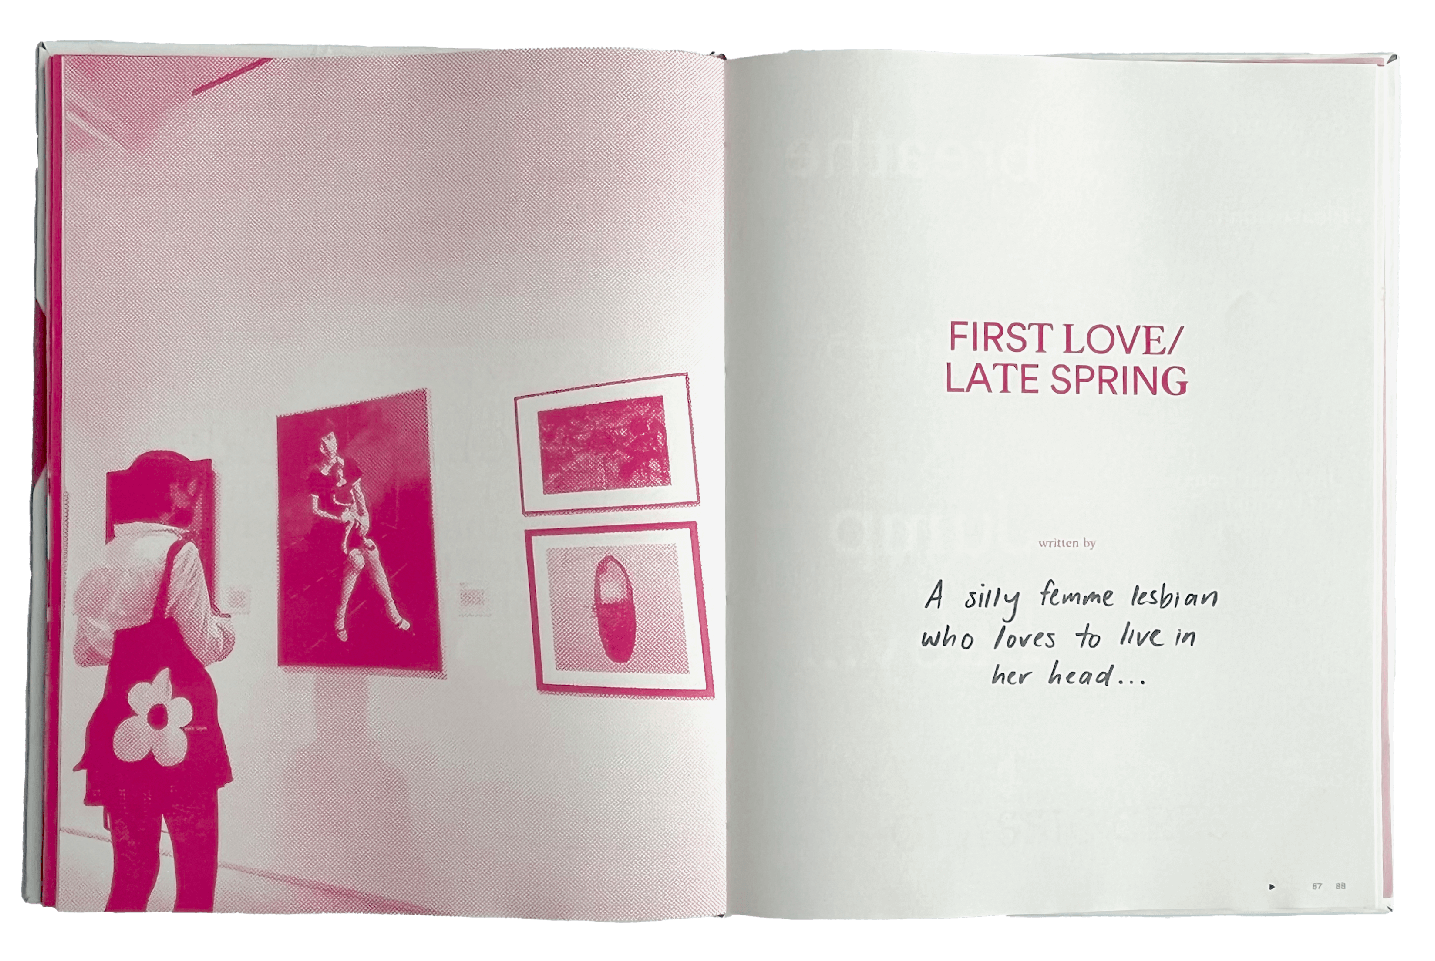 FIRST LOVE/
LATE SPRING
written by
A silly femme lesbian
who loves to live in
her head...
87 88